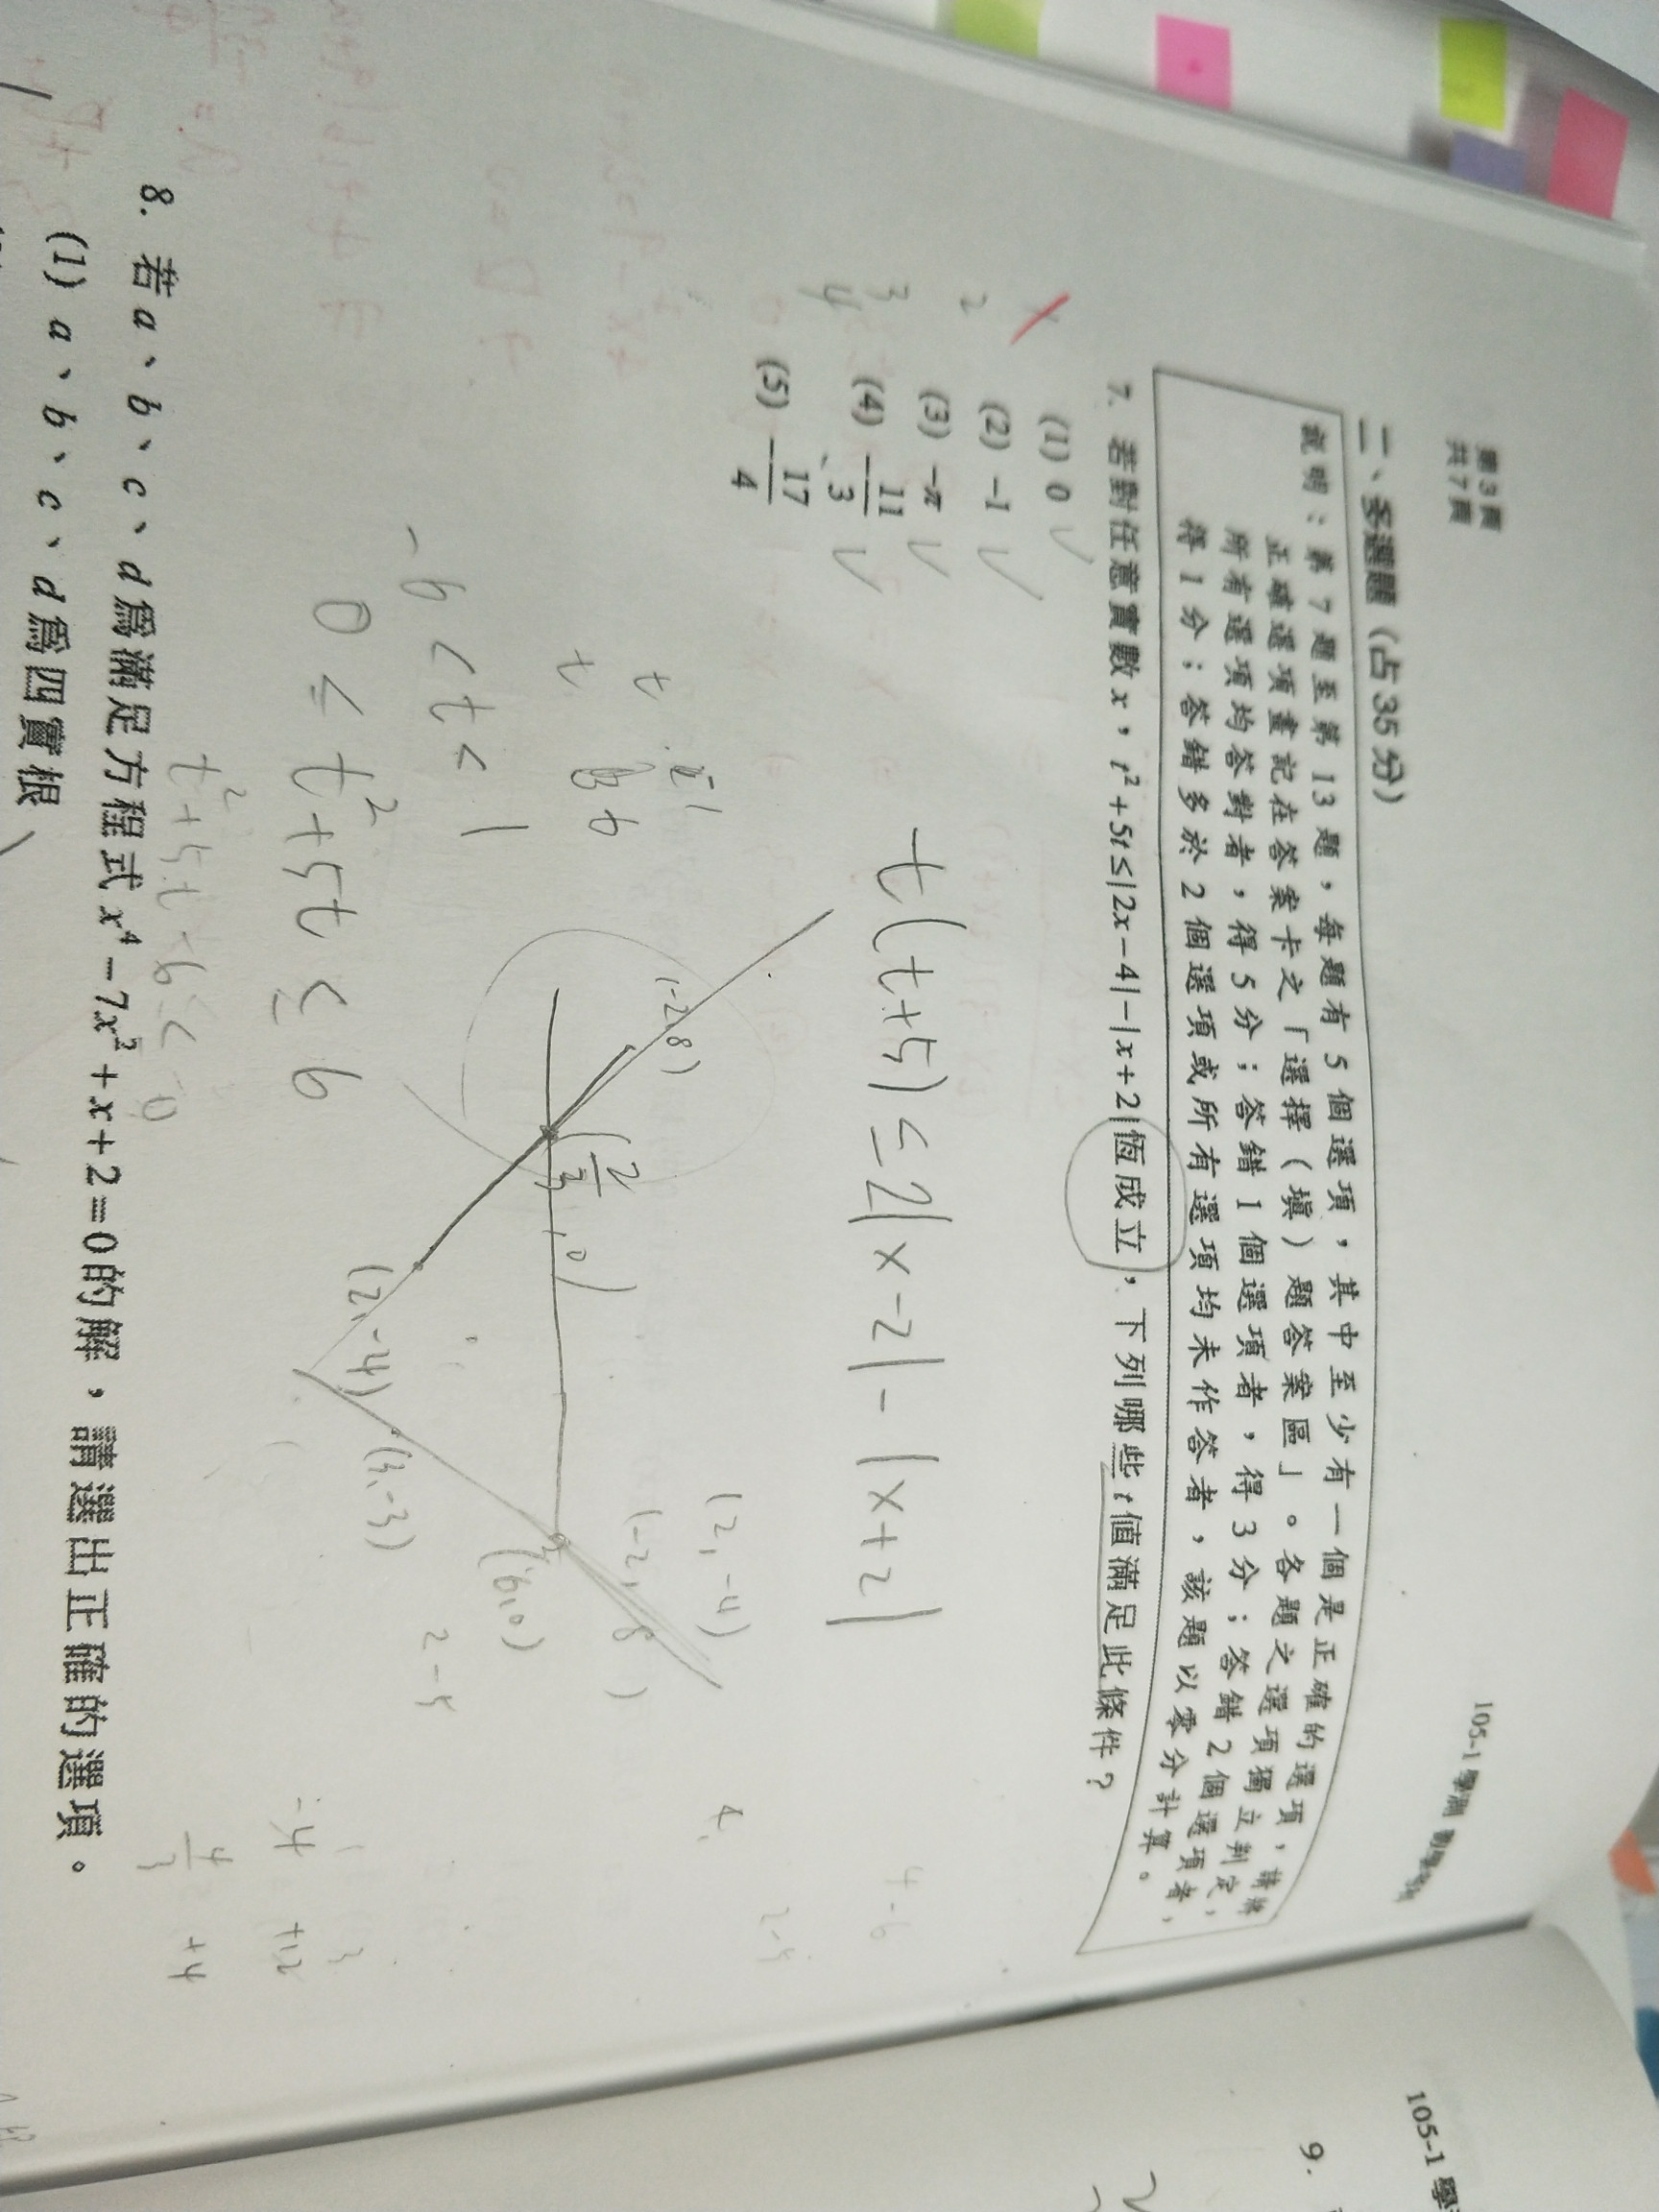 第3頁
共7頁
105-1 學測
二、多選題（占35分）
說明：第7題至第13題，每題有5個選項，其中至少有一個是正確的選項，請將
正確選項畫記在答案卡之「選擇（填）題答案區」。各題之選項獨立判定，
所有選項均答對者，得5分；答錯1個選項者，得3分；答錯2個選項者，
得1分；答錯多於2個選項或所有選項均未作答者，該題以零分計算。
7. 若對任意實數x，t²+5t≤|2x-4|-|x+2|恆成立，下列哪些t值滿足此條件？
(1) 0
(2) -1
(3) -π
(4) -11/3
(5) -17/4
2
3
4
t(t+5)≤2|x-2|-|x+2|
(-2,8)
(2/3,0)
(2,-4)
(3,-3)
(6,0)
(2,-4)
(-2,8)
2-5
4-6
2-5
t -1
t 6
-6<t<1
0≤t²+5t≤6
t²+5t-6≤0
-4 +12
4/3 +4
8. 若a、b、c、d為滿足方程式x⁴-7x³+x+2=0的解，請選出正確的選項。
(1) a、b、c、d為四實根
105-1 學
9.